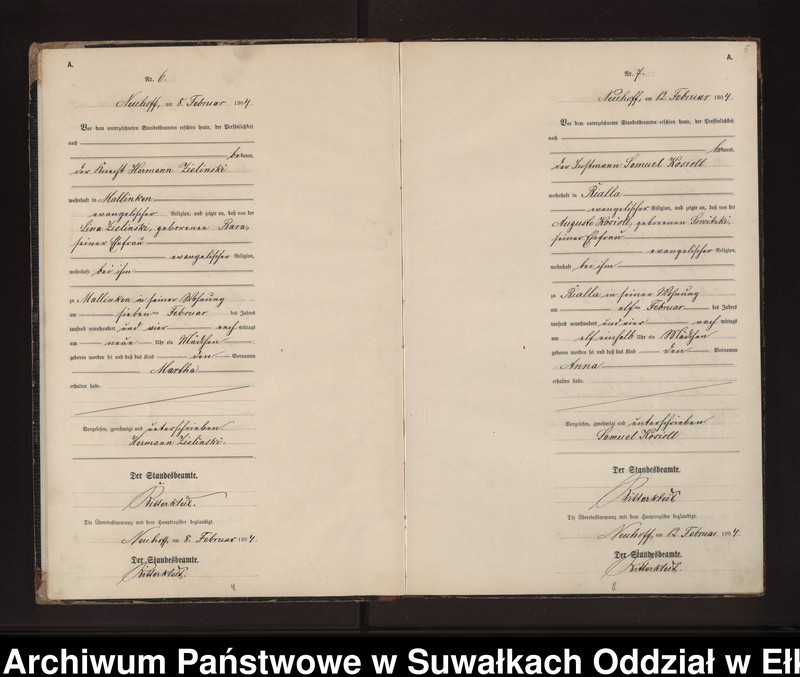 A.
Nr. 6.
Neuhoff, am 8. Februar 1904.
Vor dem unterzeichneten Standesbeamten erschien heute, der Persönlichkeit
nach
bekannt,
der Knecht Hermann Zielinski
wohnhaft in Mallinken
evangelischer Religion, und zeigte an, daß von der
Lina Zielinski, geborenen
seiner Ehefrau
evangelischer Religion,
wohnhaft bei ihm
zu Mallinken in seiner Wohnung
am sieben ten Februar des Jahres
tausend neunhundert und vier nachmittags
um neun Uhr ein Mädchen
geboren worden sei und daß das Kind den Vornamen
Martha
erhalten habe.
Vorgelesen, genehmigt und unterschrieben.
Hermann Zielinski.
Der Standesbeamte.
Die Übereinstimmung mit dem Hauptregister beglaubigt.
Neuhoff, am 8. Februar 1904.
Der Standesbeamte.
5
A.
Nr. 7.
Neuhoff, am 12. Februar 1904.
Vor dem unterzeichneten Standesbeamten erschien heute, der Persönlichkeit
nach
bekannt,
der Instmann Samuel Kosioll
wohnhaft in Rialla
evangelischer Religion, und zeigte an, daß von der
Auguste Kosioll, geborenen
seiner Ehefrau
evangelischer Religion,
wohnhaft bei ihm
zu Rialla in seiner Wohnung
am elf ten Februar des Jahres
tausend neunhundert und vier nachmittags
um elf einhalb Uhr ein Mädchen
geboren worden sei und daß das Kind den Vornamen
Anna
erhalten habe.
Vorgelesen, genehmigt und unterschrieben
Samuel Kosioll
Der Standesbeamte.
Die Übereinstimmung mit dem Hauptregister beglaubigt.
Neuhoff, am 12. Februar 1904.
Der Standesbeamte.
Archiwum Państwowe w Suwałkach Oddział w Ełk